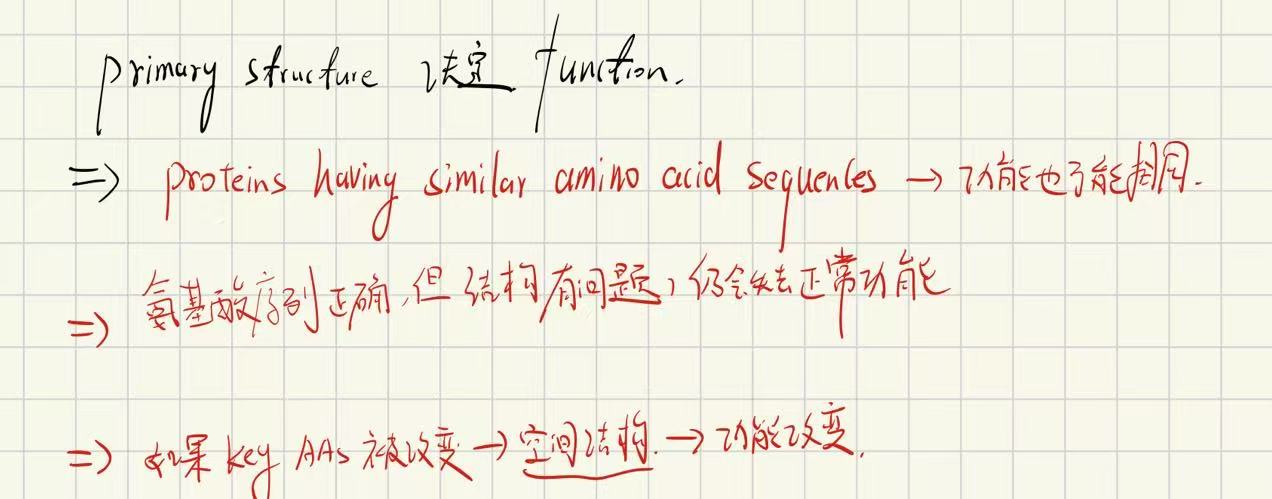 primary structure 决定 function.
=> proteins having similar amino acid sequences → 功能也可能相同.
=> 氨基酸序列正确,但结构有问题,仍会失去正常功能
=> 如果 key AAs 被改变 → 空间结构. → 功能改变.